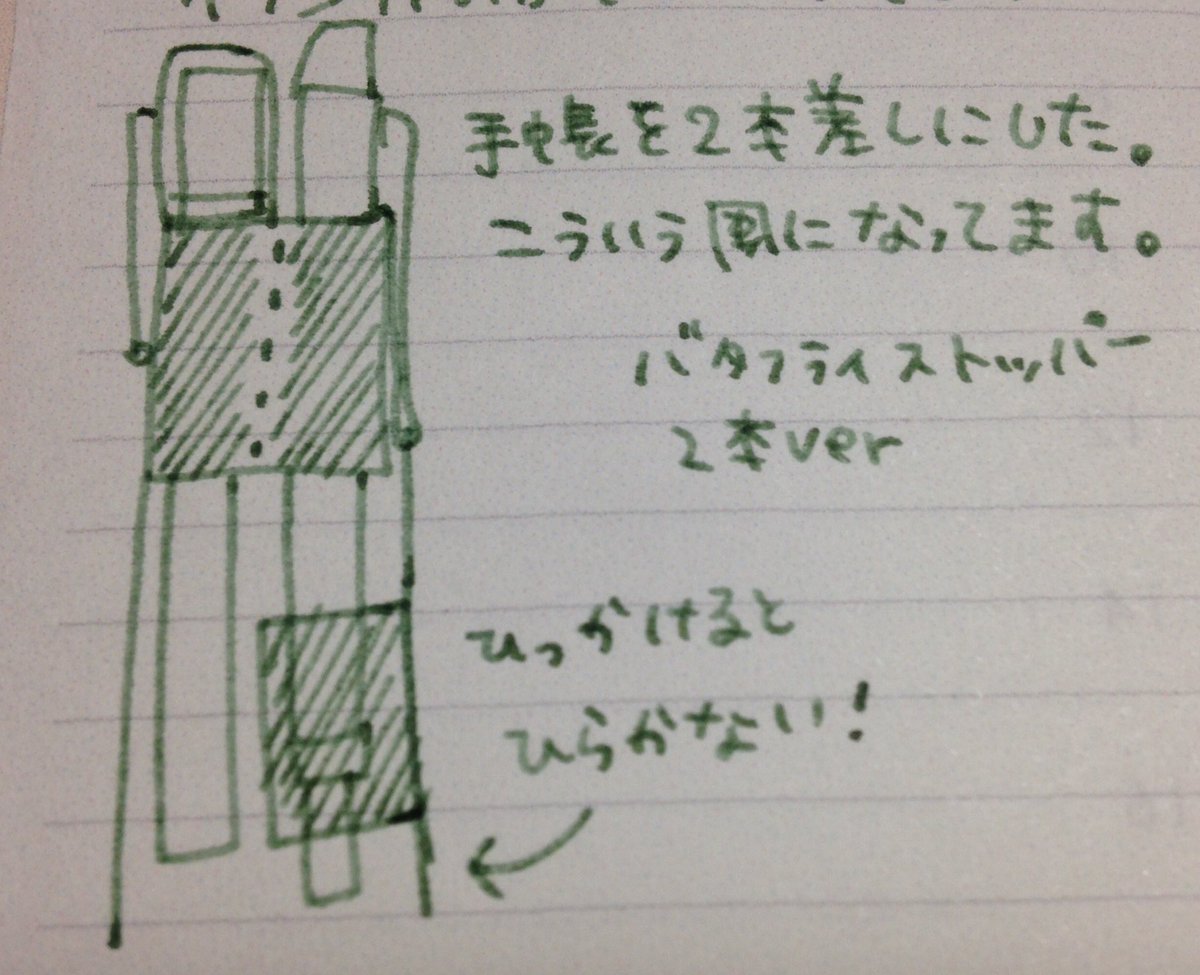 手帳を2本差しにした。
こういう風になってます。
バタフライストッパー
2本ver
ひっかけると
ひらかない!